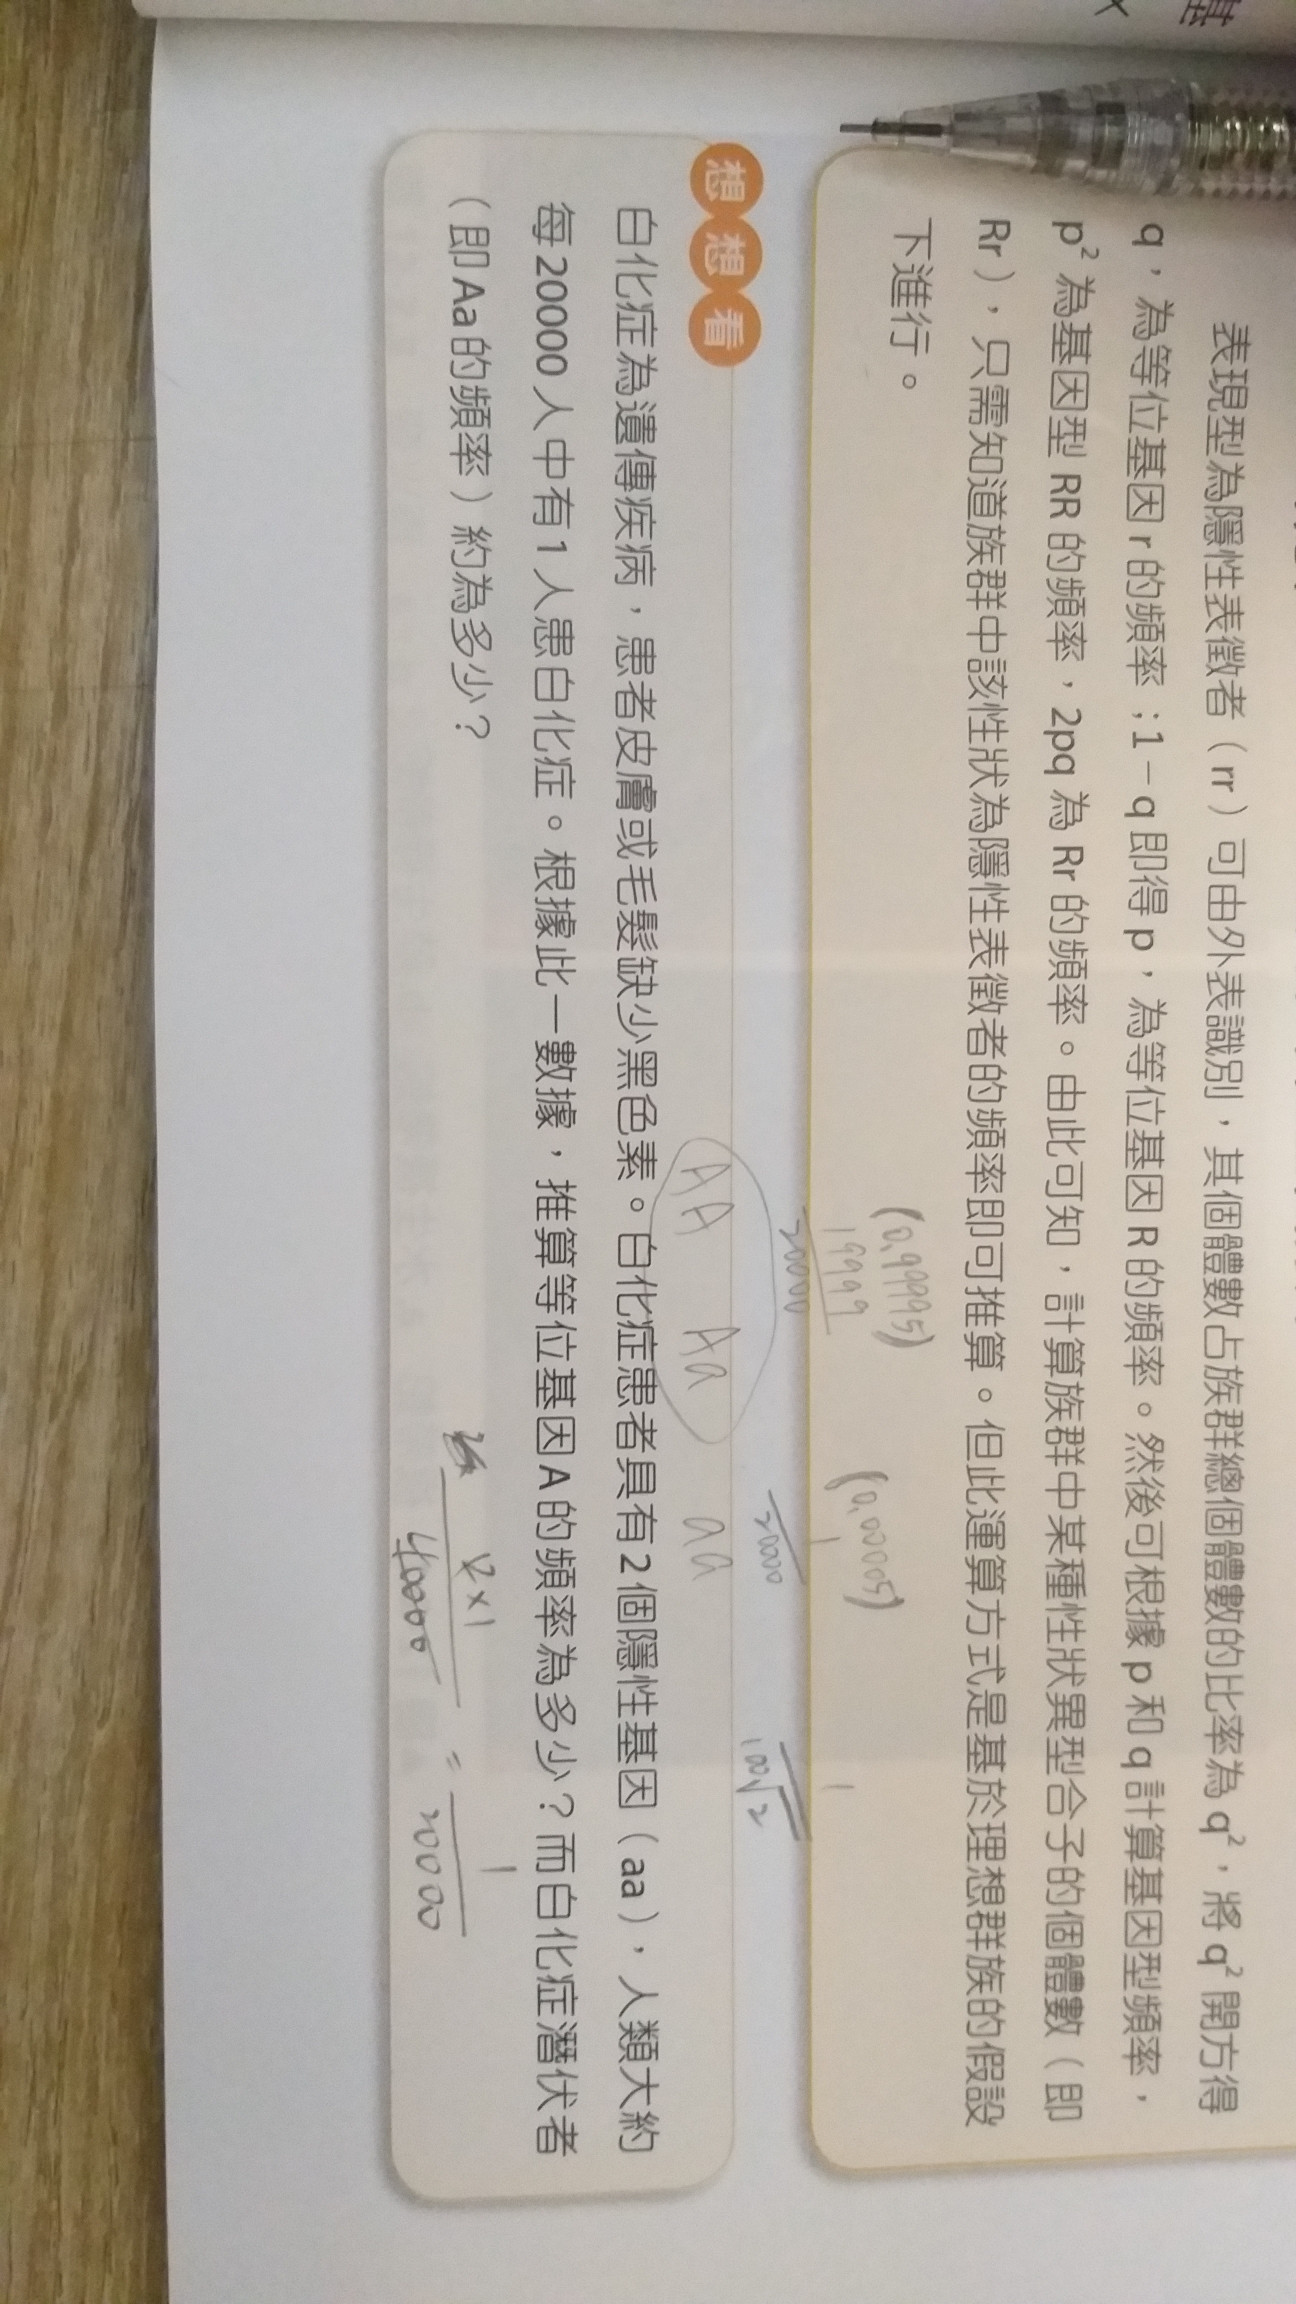 表現型為隱性表徵者（rr）可由外表識別，其個體數占族群總個體數的比率為 q²，將 q² 開方得
q，為等位基因 r 的頻率；1－q 即得 p，為等位基因 R 的頻率。然後可根據 p 和 q 計算基因型頻率，
p² 為基因型 RR 的頻率，2pq 為 Rr 的頻率。由此可知，計算族群中某種性狀異型合子的個體數（即
Rr），只需知道族群中該性狀為隱性表徵者的頻率即可推算。但此運算方式是基於理想群族的假設
下進行。
(0.99995) (0.00005)
19999 1 1
20000 20000 100√2
想想看
AA Aa aa
白化症為遺傳疾病，患者皮膚或毛髮缺少黑色素。白化症患者具有 2 個隱性基因（aa），人類大約
每 20000 人中有 1 人患白化症。根據此一數據，推算等位基因 A 的頻率為多少？而白化症潛伏者
（即 Aa 的頻率）約為多少？
2×1 1
40000 = 20000